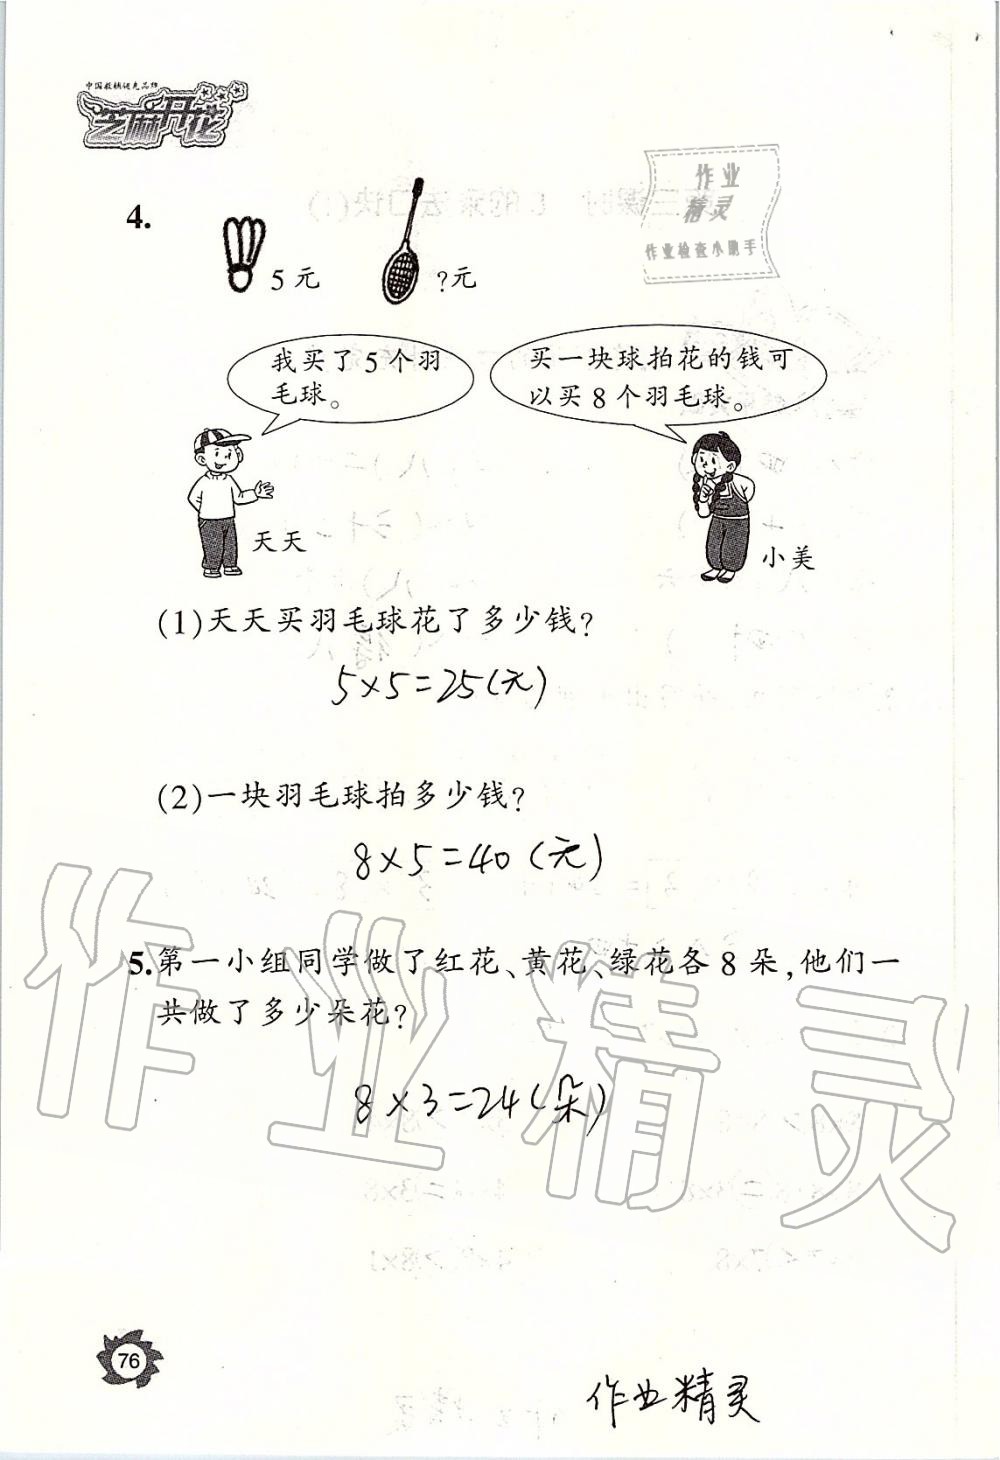 中国教辅领先品牌
芝麻开花
作业
精灵
作业检查小助手
4.
5元
?元
我买了5个羽
毛球。
买一块球拍花的钱可
以买8个羽毛球。
天天
小美
(1)天天买羽毛球花了多少钱?
5×5=25(元)
(2)一块羽毛球拍多少钱?
8×5=40(元)
5.第一小组同学做了红花、黄花、绿花各8朵,他们一
共做了多少朵花?
8×3=24(朵)
作业精灵
76
作业精灵